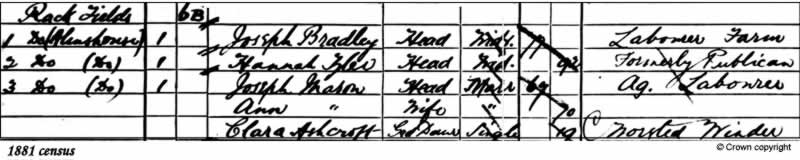 Rack Fields 6B
1 Do (Almshouse) 1 Joseph Bradley Head Widr. 77 Labourer Farm
2 Do (Do) 1 Hannah Tyler Head Wid. 92 Formerly Publican
3 Do (Do) 1 Joseph Mason Head Marr 69 Ag. Labourer
Ann " Wife " 70
Clara Ashcroft Gnd Daur Single 19 Worsted Winder
1881 census
© Crown copyright